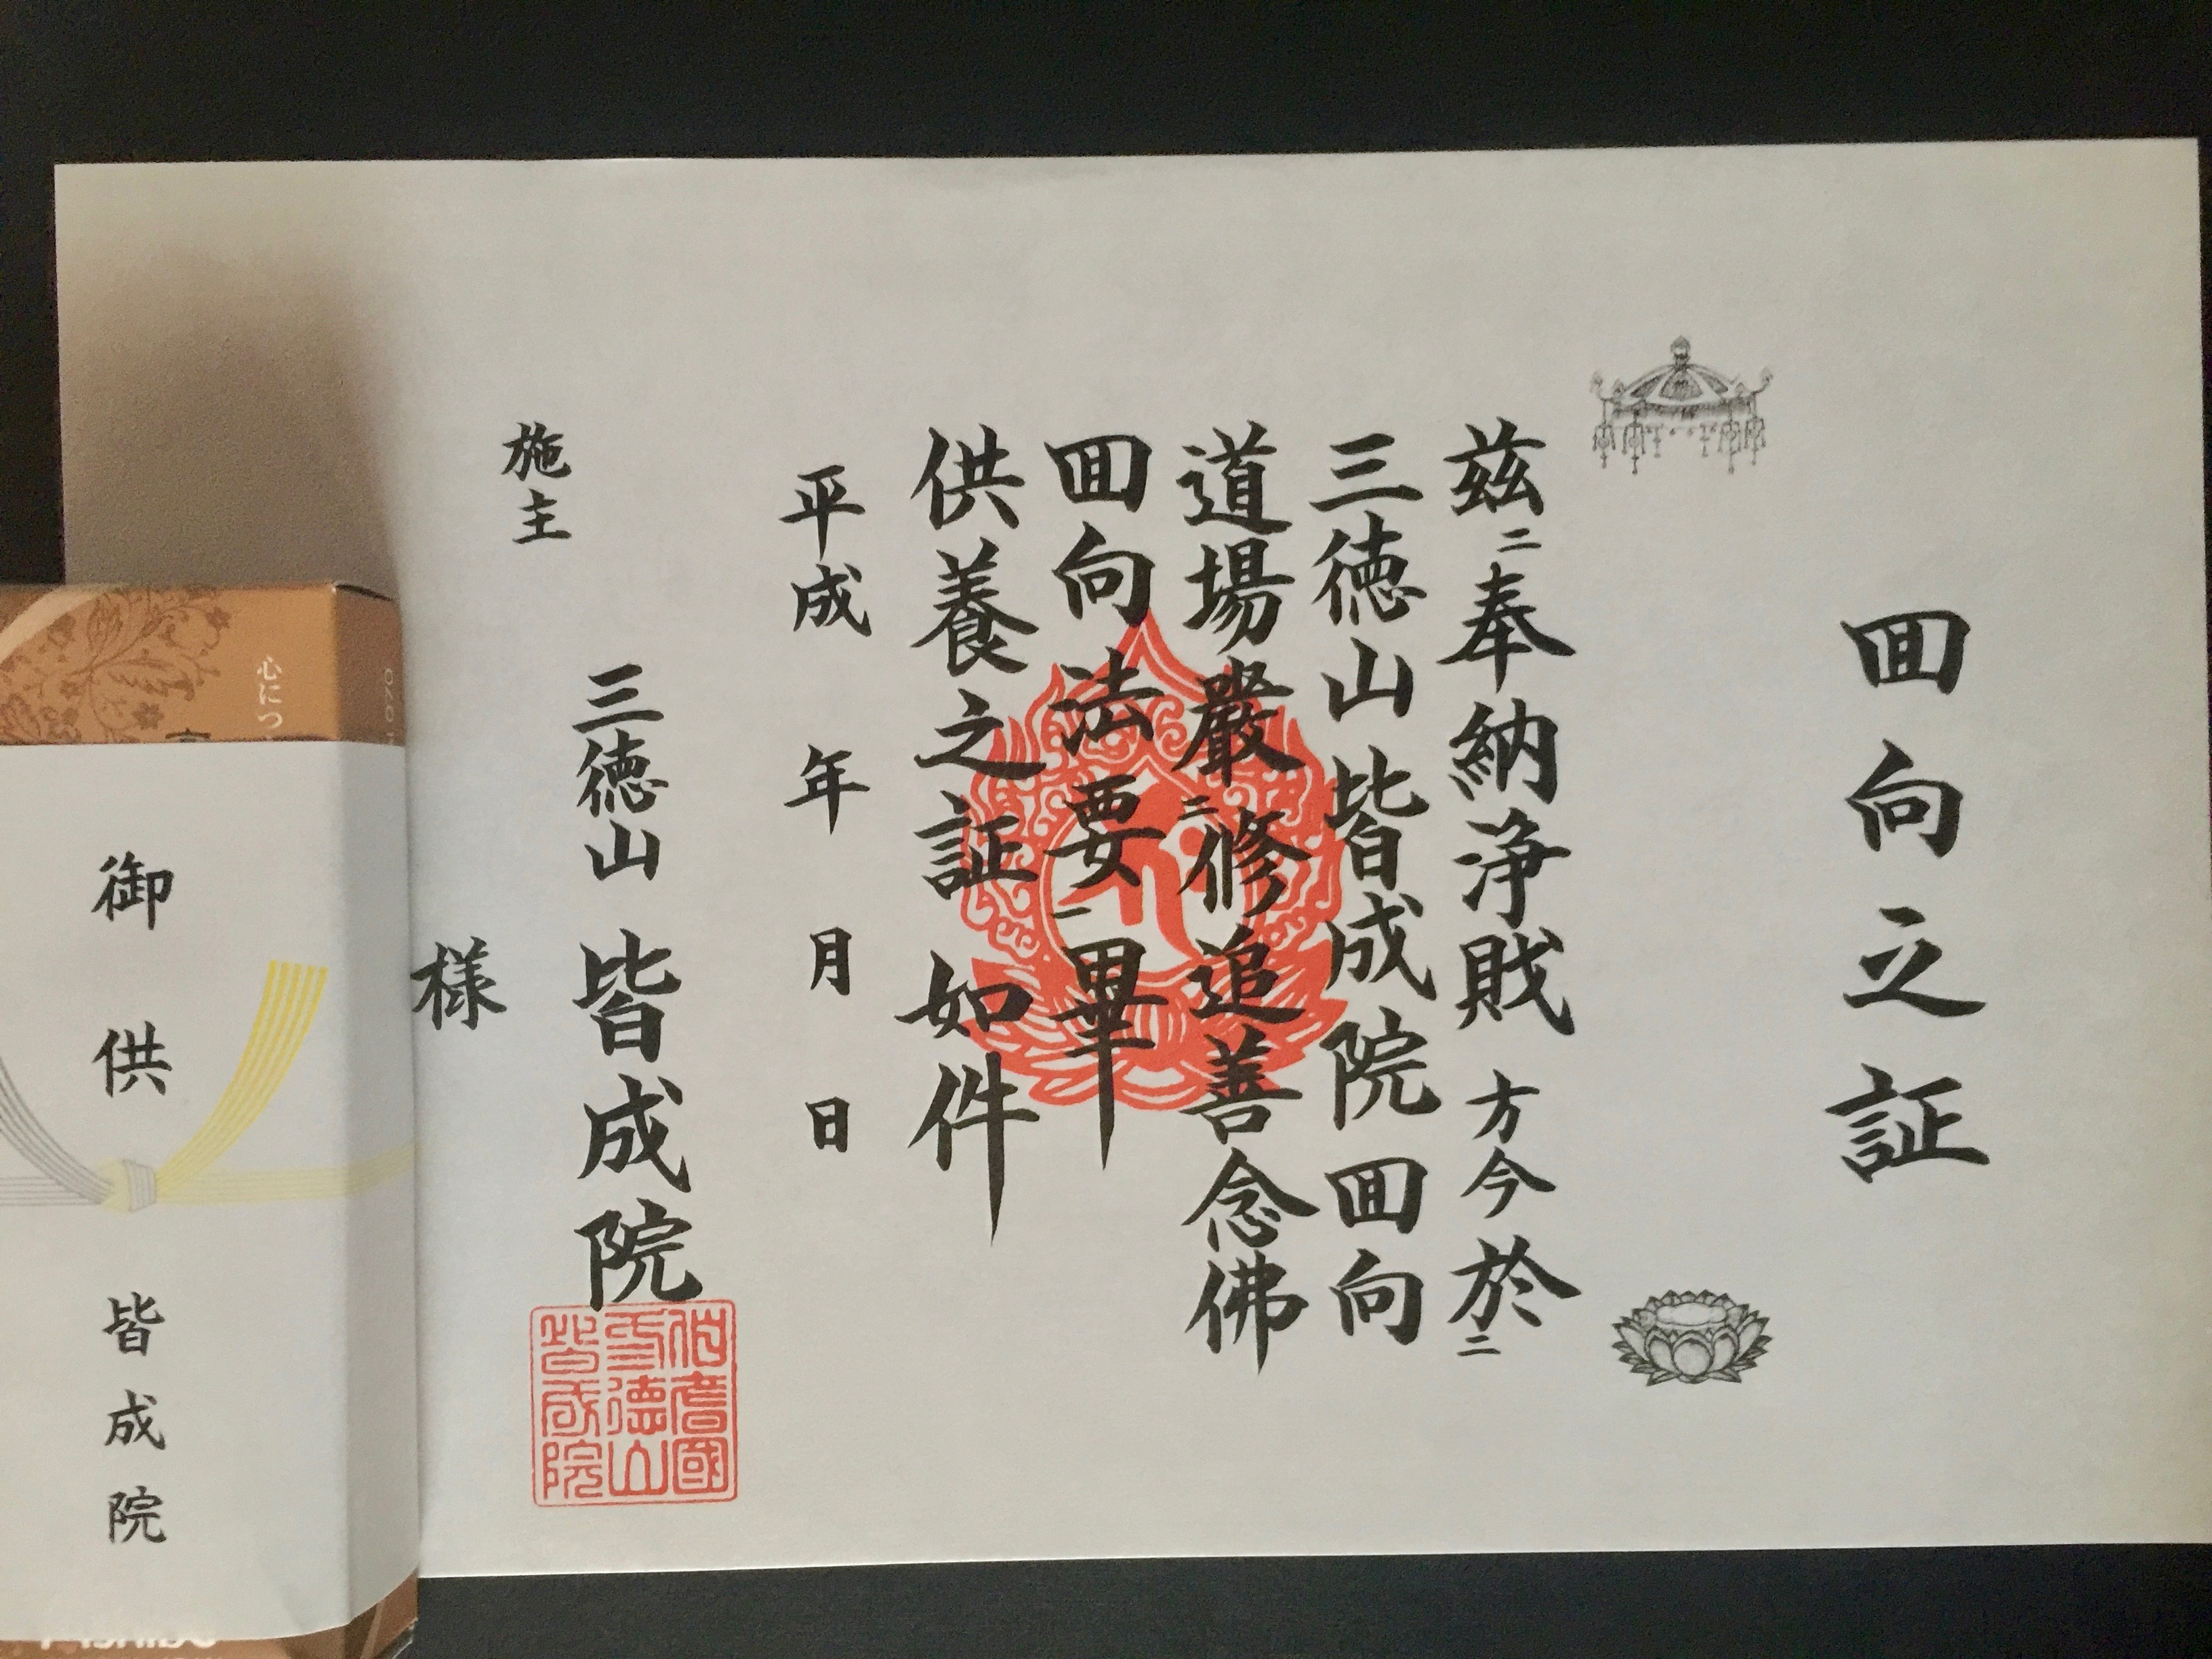 囬向之証
茲ニ奉納浄財方今於ニ
三徳山皆成院囬向
道場嚴ニ修追善念佛
囬向法要一畢
供養之証如件
平成　年　月　日
三徳山皆成院
伯耆國
三德山
皆成院
施主　様
心につ
070
御供
皆成院